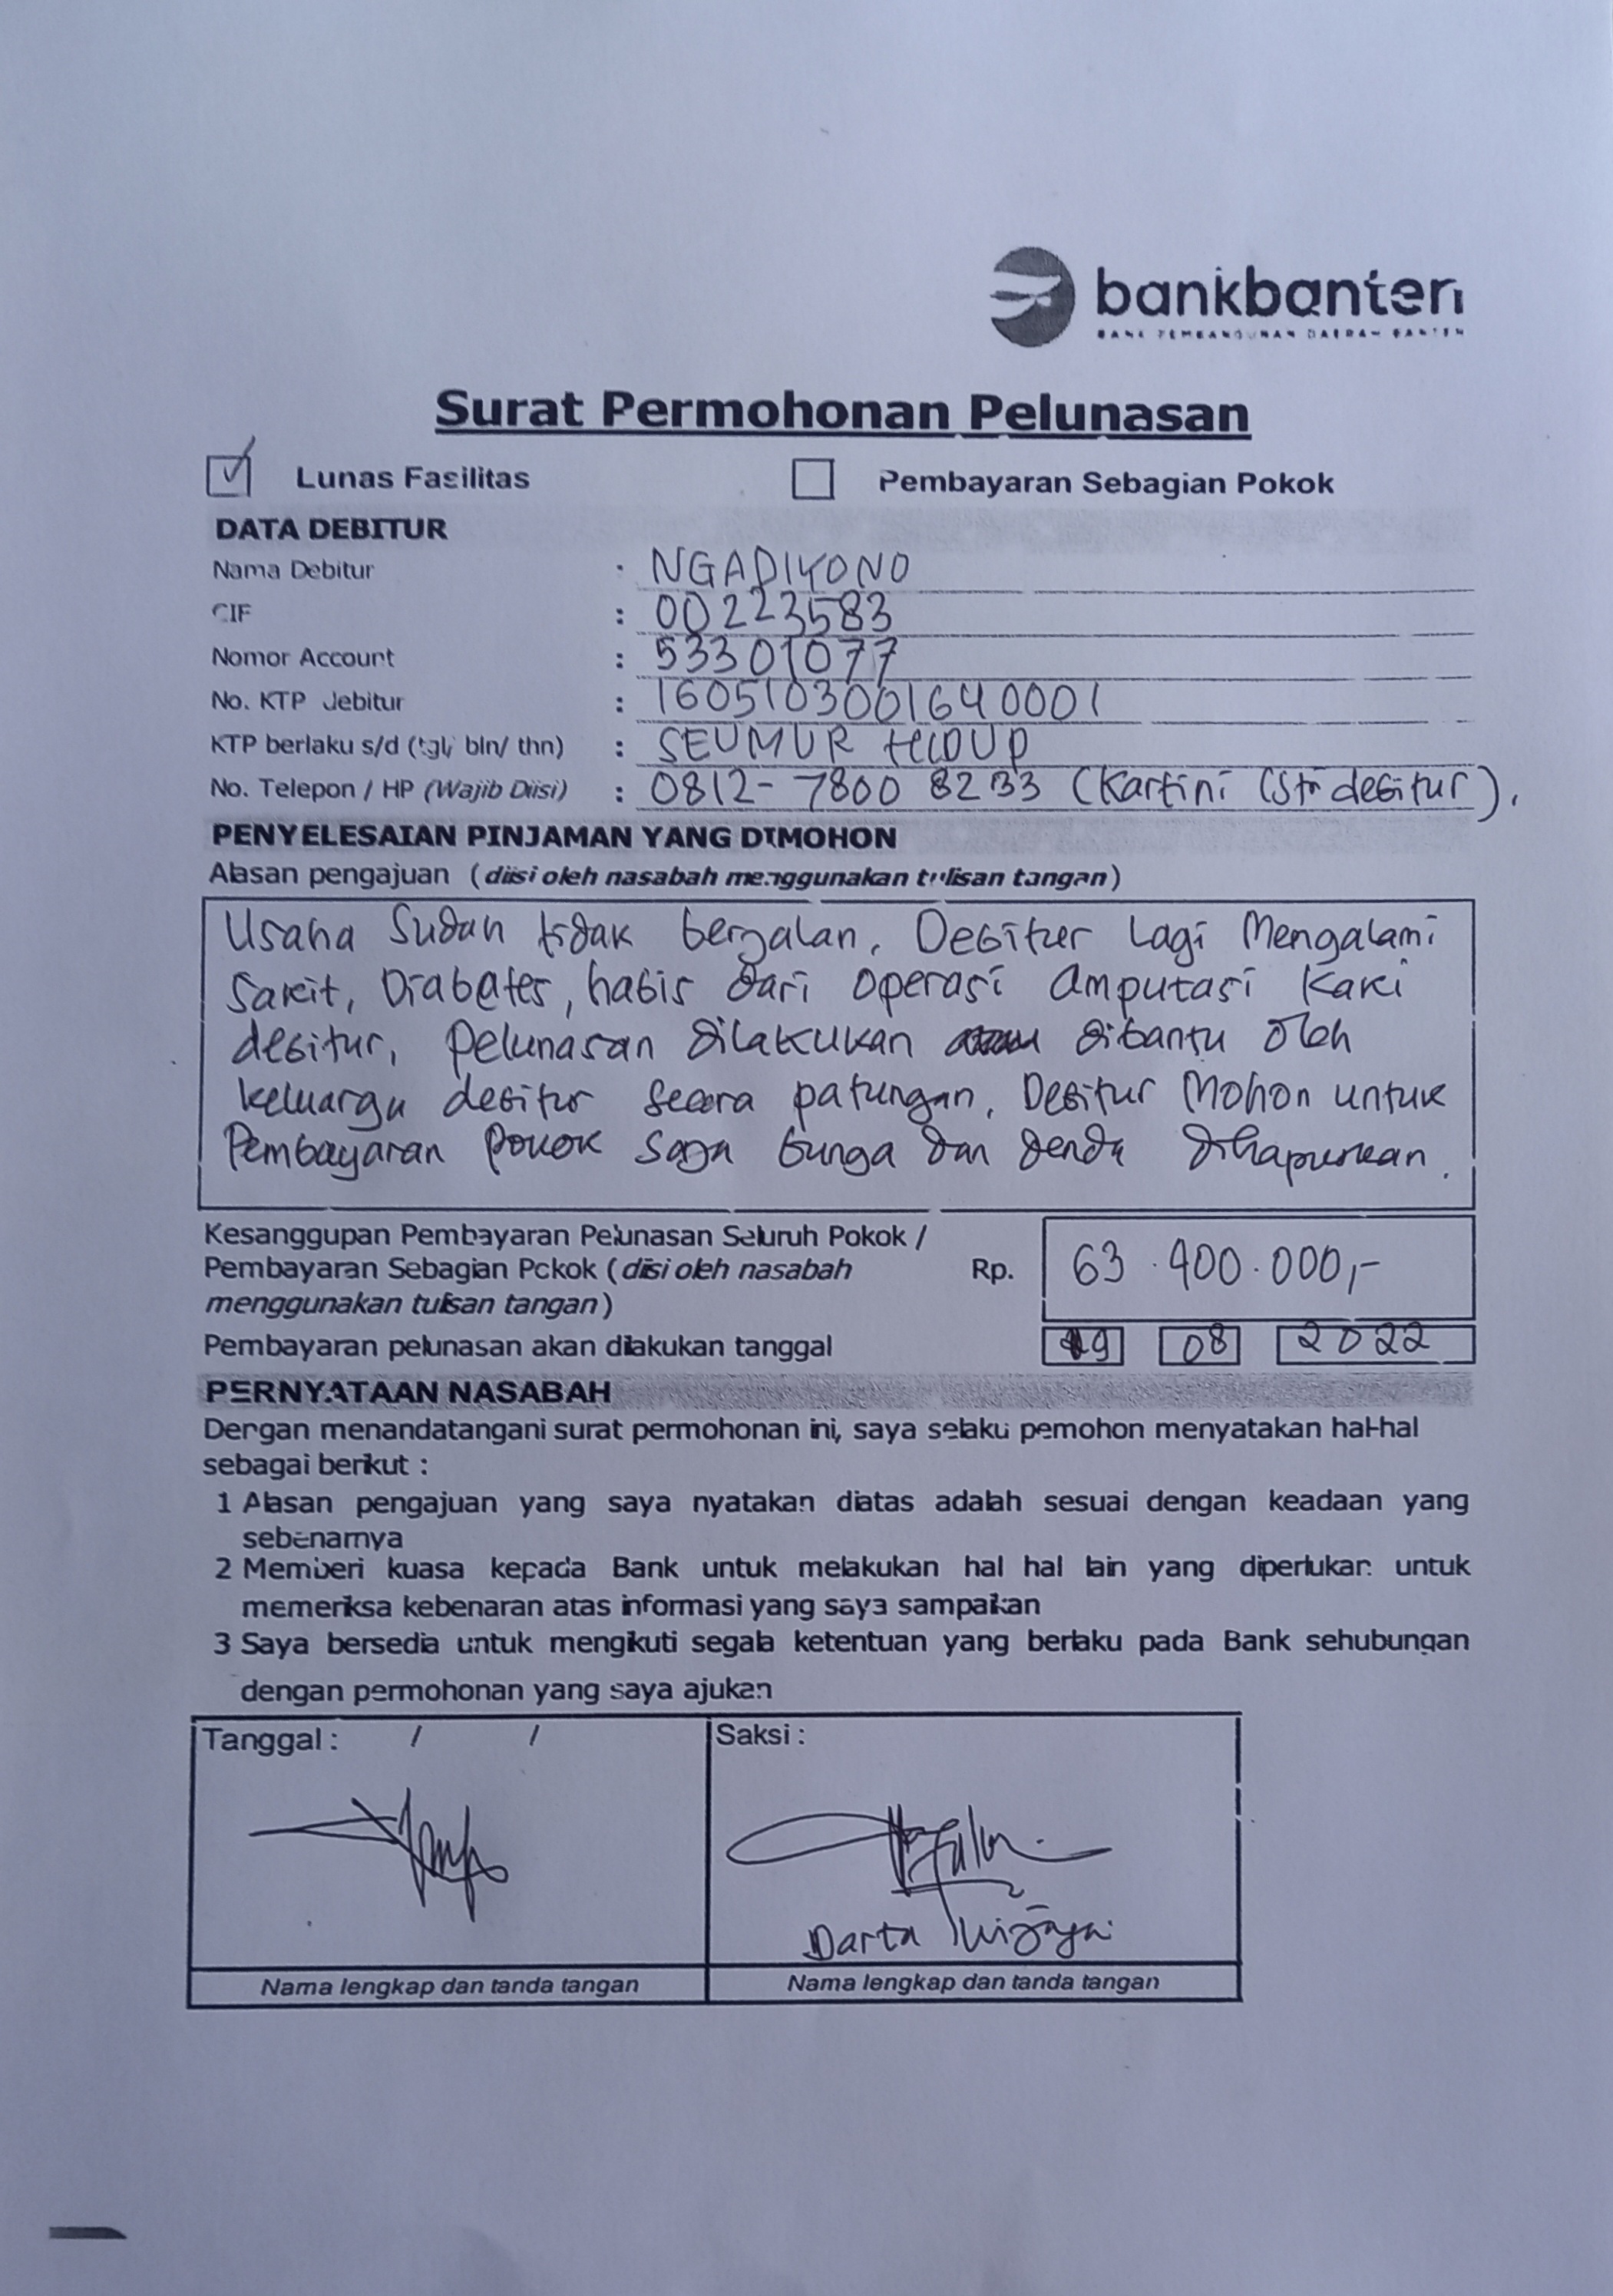 bankbanten
BANK PEMBANGUNAN DAERAH BANTEN
Surat Permohonan Pelunasan
Lunas Fasilitas
Pembayaran Sebagian Pokok
DATA DEBITUR
Nama Debitur : NGADIYONO
CIF : 00223583
Nomor Account : 53301077
No. KTP Debitur : 1605103001640001
KTP berlaku s/d (tgl/ bln/ thn) : SEUMUR HIDUP
No. Telepon / HP (Wajib Diisi) : 0812- 7800 8233 (Kartini istri debitur).
PENYELESAIAN PINJAMAN YANG DIMOHON
Alasan pengajuan (diisi oleh nasabah menggunakan tulisan tangan)
Usaha Sudah tidak berjalan, Debitur Lagi Mengalami
Sakit, Diabates, habis dari operasi amputasi kaki
debitur, Pelunasan dilakukan dibantu oleh
keluarga debitur secara patungan, Debitur Mohon untuk
Pembayaran pokok saja bunga dan denda dihapuskan.
Kesanggupan Pembayaran Pelunasan Seluruh Pokok /
Pembayaran Sebagian Pokok (diisi oleh nasabah
menggunakan tulisan tangan)
Rp. 63.400.000,-
Pembayaran pelunasan akan dilakukan tanggal 08 2022
PERNYATAAN NASABAH
Dengan menandatangani surat permohonan ini, saya selaku pemohon menyatakan hal-hal
sebagai berikut :
1 Alasan pengajuan yang saya nyatakan diatas adalah sesuai dengan keadaan yang
sebenarnya
2 Memberi kuasa kepada Bank untuk melakukan hal hal lain yang diperlukan untuk
memeriksa kebenaran atas informasi yang saya sampaikan
3 Saya bersedia untuk mengikuti segala ketentuan yang berlaku pada Bank sehubungan
dengan permohonan yang saya ajukan
Tanggal : / /
Saksi :
Darta Wijaya
Nama lengkap dan tanda tangan
Nama lengkap dan tanda tangan